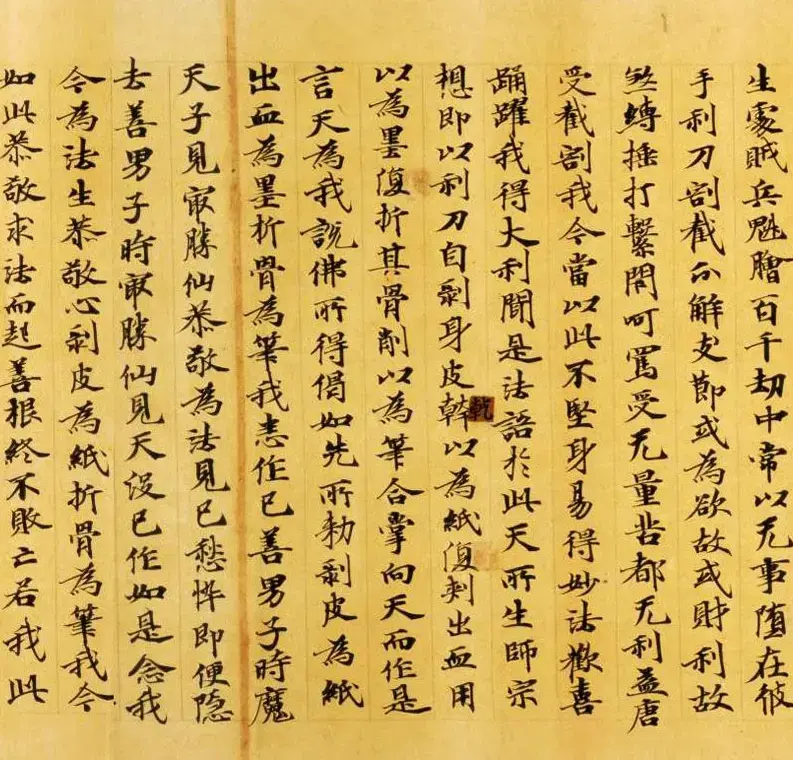 生處賊兵魁膾百千劫中常以无事墮在彼
手利刀割截而解支節或為欲故或財利故
煞縛捶打繫閇呵罵受无量苦都无利益唐
受截割我今當以此不堅身易得妙法歡喜
踊躍我得大利聞是法語於此天所生師宗
想即以利刀自剝身皮乾以為紙復刺出血用
以為墨復折其骨削以為筆合掌向天而作是
言天為我說佛所得偈如先所勑剝皮為紙
出血為墨折骨為筆我悉作已善男子時魔
天子見㝡勝仙恭敬為法見已愁悴即便隱
去善男子時㝡勝仙見天沒已作如是念我
今為法生恭敬心剝皮為紙折骨為筆我今
如此恭敬求法而起善根終不敗亡若我此